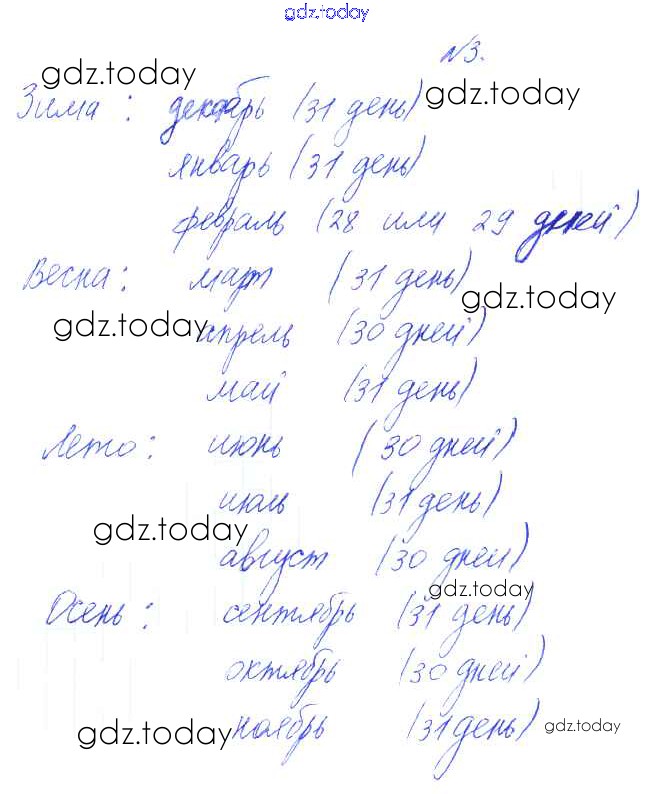 gdz.today
№3.
gdz.today
Зима: декабрь (31 день)
gdz.today
январь (31 день)
февраль (28 или 29 дней)
Весна: март (31 день)
gdz.today
gdz.today
апрель (30 дней)
май (31 день)
Лето: июнь (30 дней)
июль (31 день)
gdz.today
август (30 дней)
gdz.today
Осень: сентябрь (31 день)
октябрь (30 дней)
ноябрь (31 день)
gdz.today
gdz.today